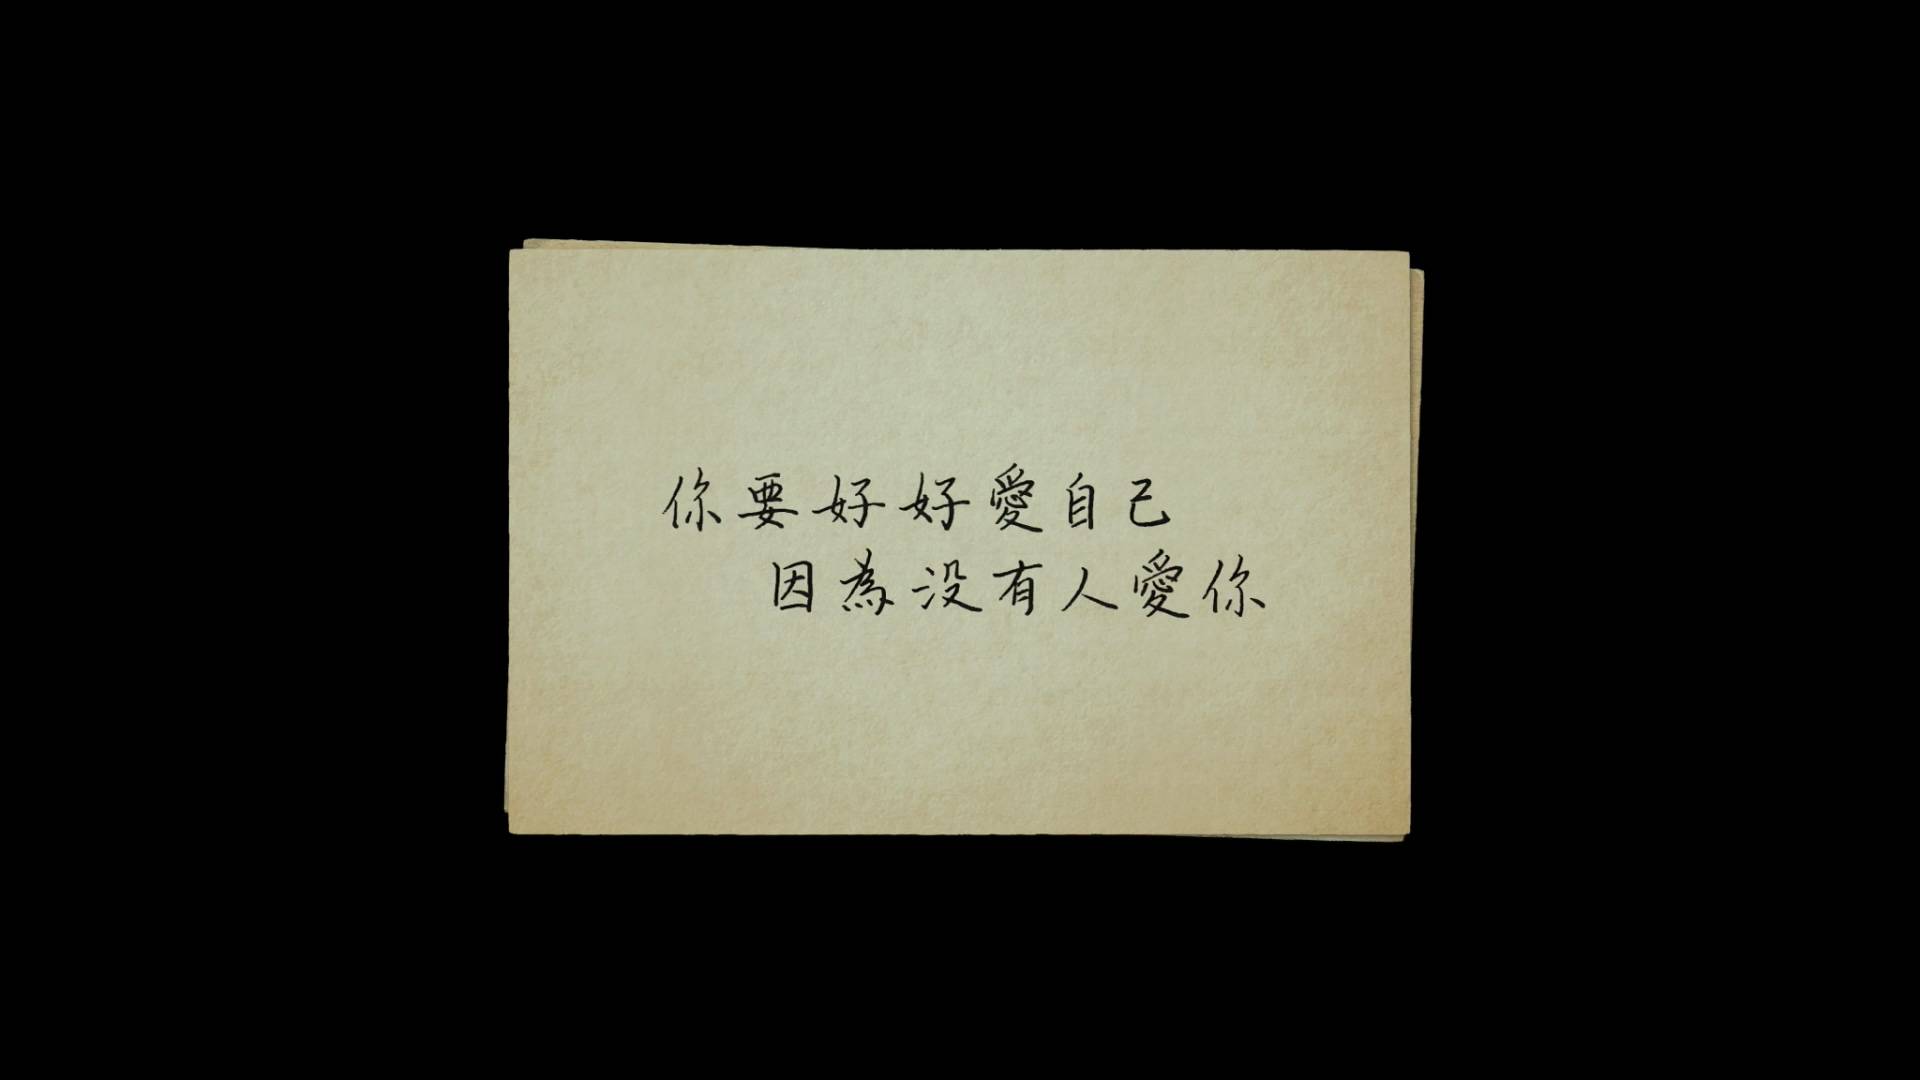 你要好好愛自己
因為没有人愛你